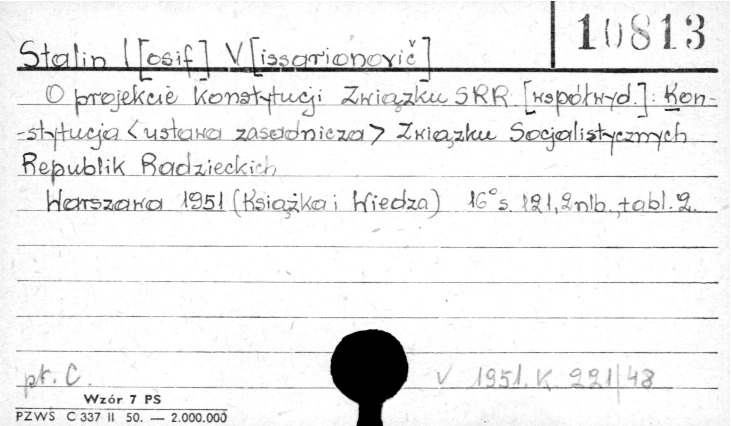 10813
Stalin I[osif] V[issarionovič]
O projekcie Konstytucji Związku SRR. [współwyd.]: Kon-
-stytucja <ustawa zasadnicza> Związku Socjalistycznych
Republik Radzieckich
Warszawa 1951 (Książka i Wiedza) 16° s. 121, 2nlb., tabl. 2.
pt. C. V 1951. K 221/48
Wzór 7 PS
PZWS C 337 II 50. — 2.000.000